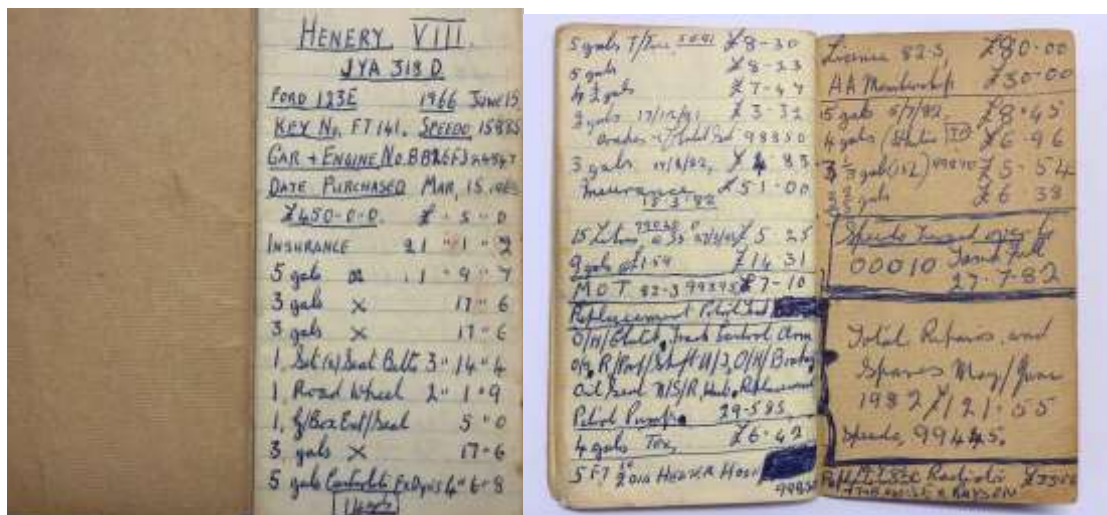 HENERY VIII
JYA 318 D
FORD 123E 1966 JUNE 15
KEY No, FT 141, SPEEDO 15885
CAR + ENGINE No. BB26FJ
DATE PURCHASED MAR, 15,
£450-0-0. £ " 5 " 0
INSURANCE 21 " 1 " 2
5 gals 1 " 9 " 7
3 gals X 17 " 6
3 gals X 17 " 6
1, Set (4) Seat Belts 3 " 14 " 4
1, Road Wheel 2 " 1 " 9
1, G/Box Ext/Seal 5 " 0
3, gals X 17-6
5 gals 6 " 8
5 gals £8-30
5 gals £8-23
4 1/2 gals £7-47
2 gals 17/12/81 £3-32
98850
3 gals £4 83
Insurance £51-00
18 3 82
15 Litres £5 25
9 gals @ 1.59 £14 31
MOT 82-3 99395 £7-10
Replacement Petrol Tank
O/H/Clutch, Track Control Arm
O/H/Brakes
Oil Seal N/S/R, Hub, Replacement
Petrol Pump, 29-5 85,
4 gals Tax, £6-42
Licence 82-3, £80-00
AA Membership £30-00
15 gals 5/7/82, £8-45
4 gals £6-96
gals £5-54
gals £6 38
Speedo Turned over to
00010 Tank Full
27-7-82
Total Repairs, and
Spares May/June
1982 £121-55
Speedo, 99445.
Radiator